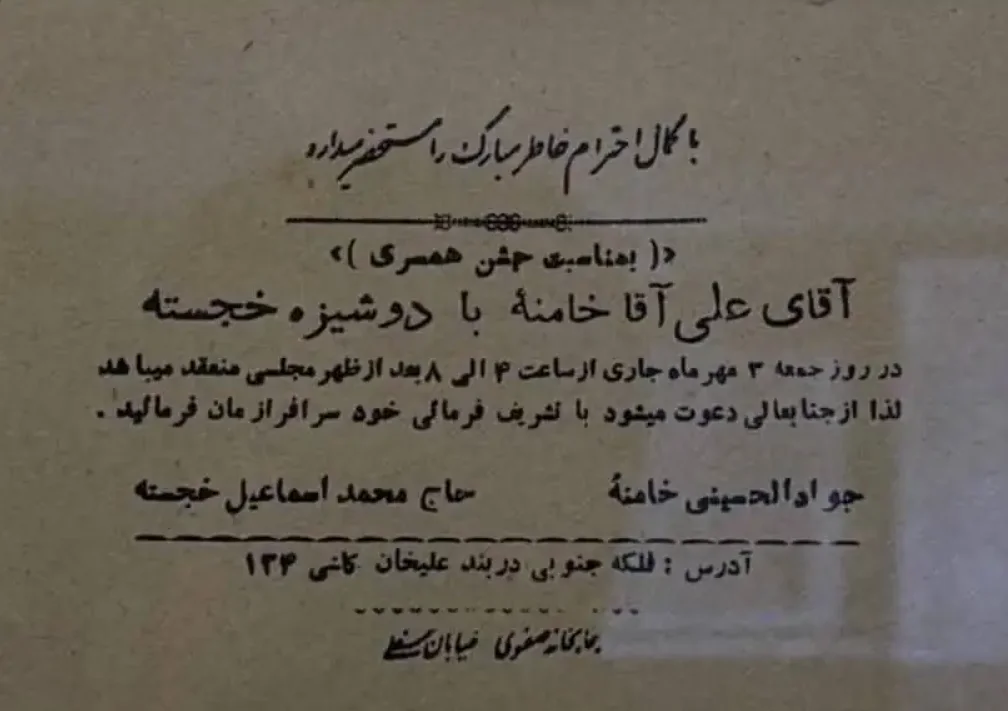 با کمال احترام خاطر مبارک را مستحضر میدارد
«( بمناسبت جشن همسری )»
آقای علی آقا خامنهٔ با دوشیزه خجسته
در روز جمعه ۳ مهر ماه جاری از ساعت ۴ الی ۸ بعد از ظهر مجلسی منعقد میباشد
لذا از جنابعالی دعوت میشود با تشریف فرمائی خود سرافرازمان فرمائید .
جواد الحسینی خامنهٔ حاج محمد اسماعیل خجسته
آدرس : فلکه جنوبی دربند علیخان کاشی ۱۳۴
چاپخانه صفوی خیابان